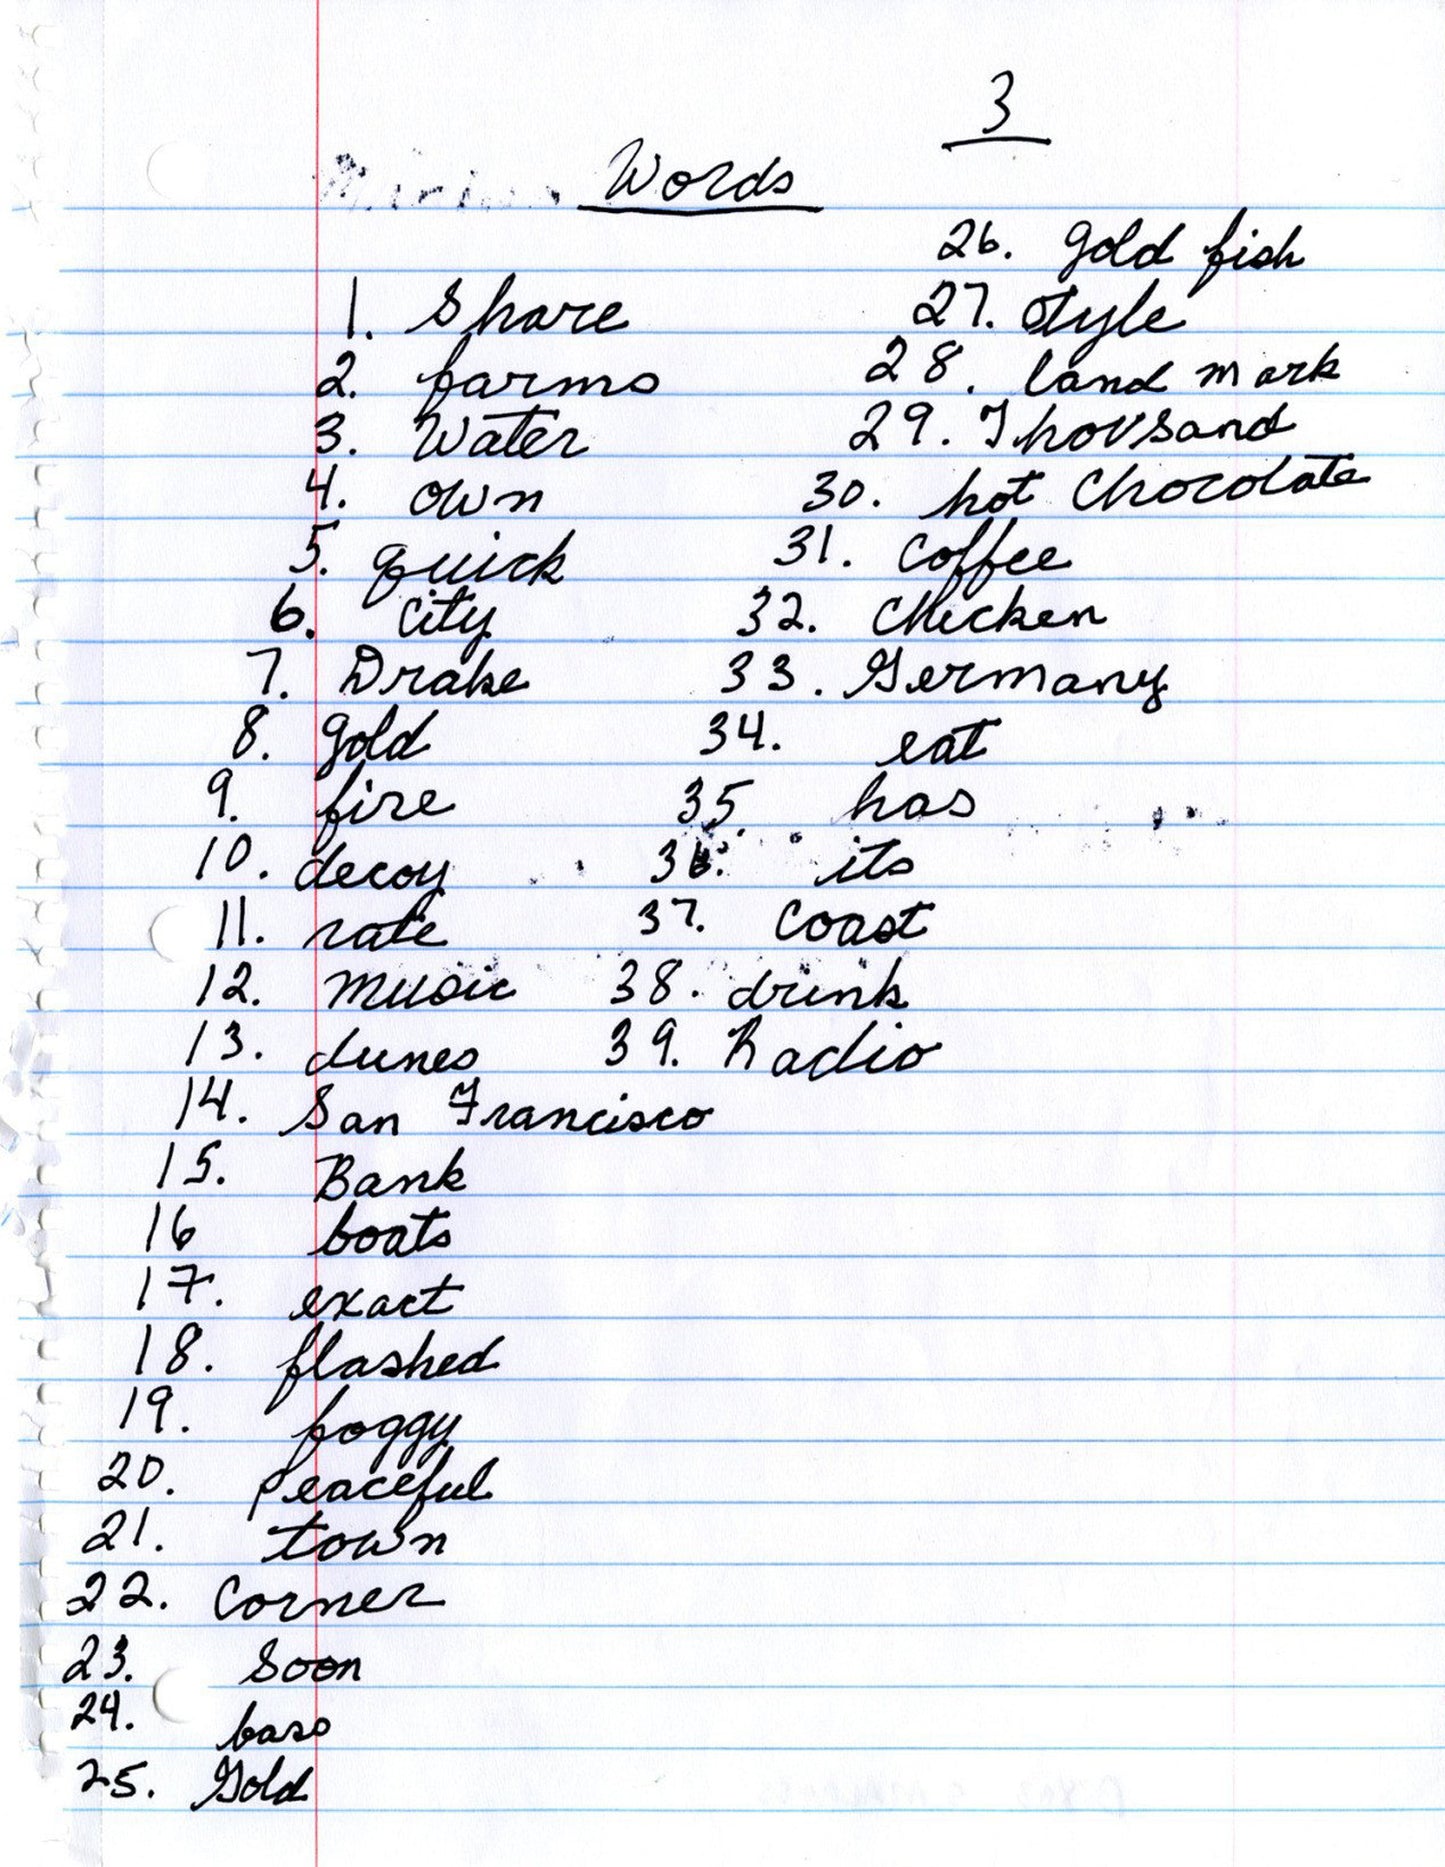 3
Words
1. Share
2. farms
3. Water
4. own
5. quick
6. City
7. Drake
8. gold
9. fire
10. decoy
11. rate
12. Music
13. dunes
14. San Francisco
15. Bank
16 boats
17. exact
18. flashed
19. foggy
20. peaceful
21. town
22. Corner
23. Soon
24. bass
25. Gold
26. gold fish
27. style
28. land mark
29. Thousand
30. hot Chocolate
31. Coffee
32. Chicken
33. Germany
34. eat
35. has
36. its
37. Coast
38. drink
39. Radio